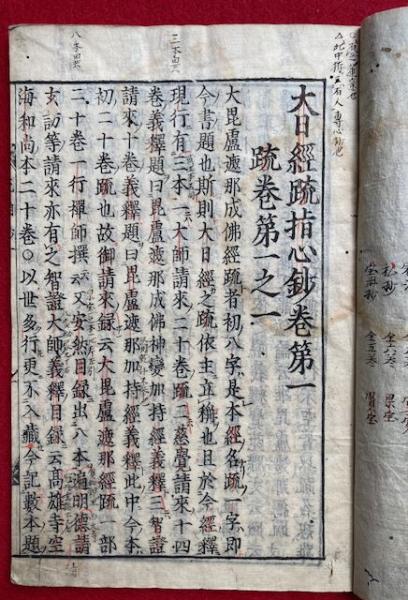 大日經䟽指心鈔卷第一
䟽卷第一之一
大毘盧遮那成佛經䟽者初八字是本經名䟽一字即
今書題也斯則大日經之䟽依主立稱也且於今經釋
現行有三本一大師請來二十卷䟽二慈覺請來十四
卷義釋題曰毘盧遮那成佛神變加持經義釋三智證
請來十卷義釋題曰毘盧遮那加持經義釋此中今本
初二十卷䟽也故御請來録云大毘盧遮那經䟽一部
二十卷一行禪師撰云云又安然目録出八本遍明德請
玄昉等請來亦有之智證大師義釋目録云高雄寺空
海和尚本二十卷〇以世多行更不入藏今記數本題